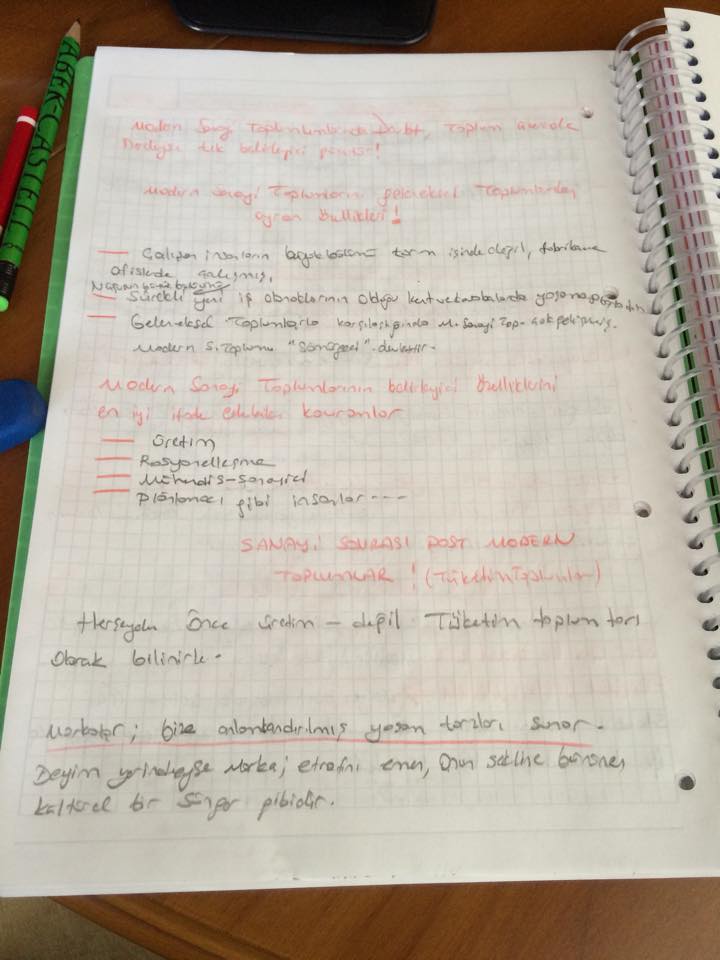 ABEK-CASTELL
Modern Sanayi Toplumlarında Toplum
tek belirleyici
Modern Sanayi Toplumların geleneksel Toplumlardan
ayıran özellikleri!
— Çalışan insanların büyük bölümü tarım işinde değil, fabrika
ofislerde çalışmış,
Nüfusun
— Sürekli yeni iş olanaklarının olduğu kent ve kasabalarda
— Geleneksel Toplumlarla karşılaştığında M. Sanayi Top. çok gelişmiş.
Modern S. Toplumu "Sömürgeci"
Modern Sanayi Toplumlarının belirleyici özelliklerini
en iyi ifade edebilen kavramlar
— üretim
— Rasyonelleşme
— Mühendis-Sanayici
— Planlamacı gibi insanlar ---
SANAYİ SONRASI POST MODERN
TOPLUMLAR ! (Tüketim Toplumları)
Herşeyden Önce üretim - değil Tüketim toplumları
Olarak bilinirler.
Markalar; bize anlamlandırılmış yaşam tarzları sunar.
Deyim yerindeyse Marka; etrafını emen, Onun şekline bürünen
kültürel bir Sünger gibidir.